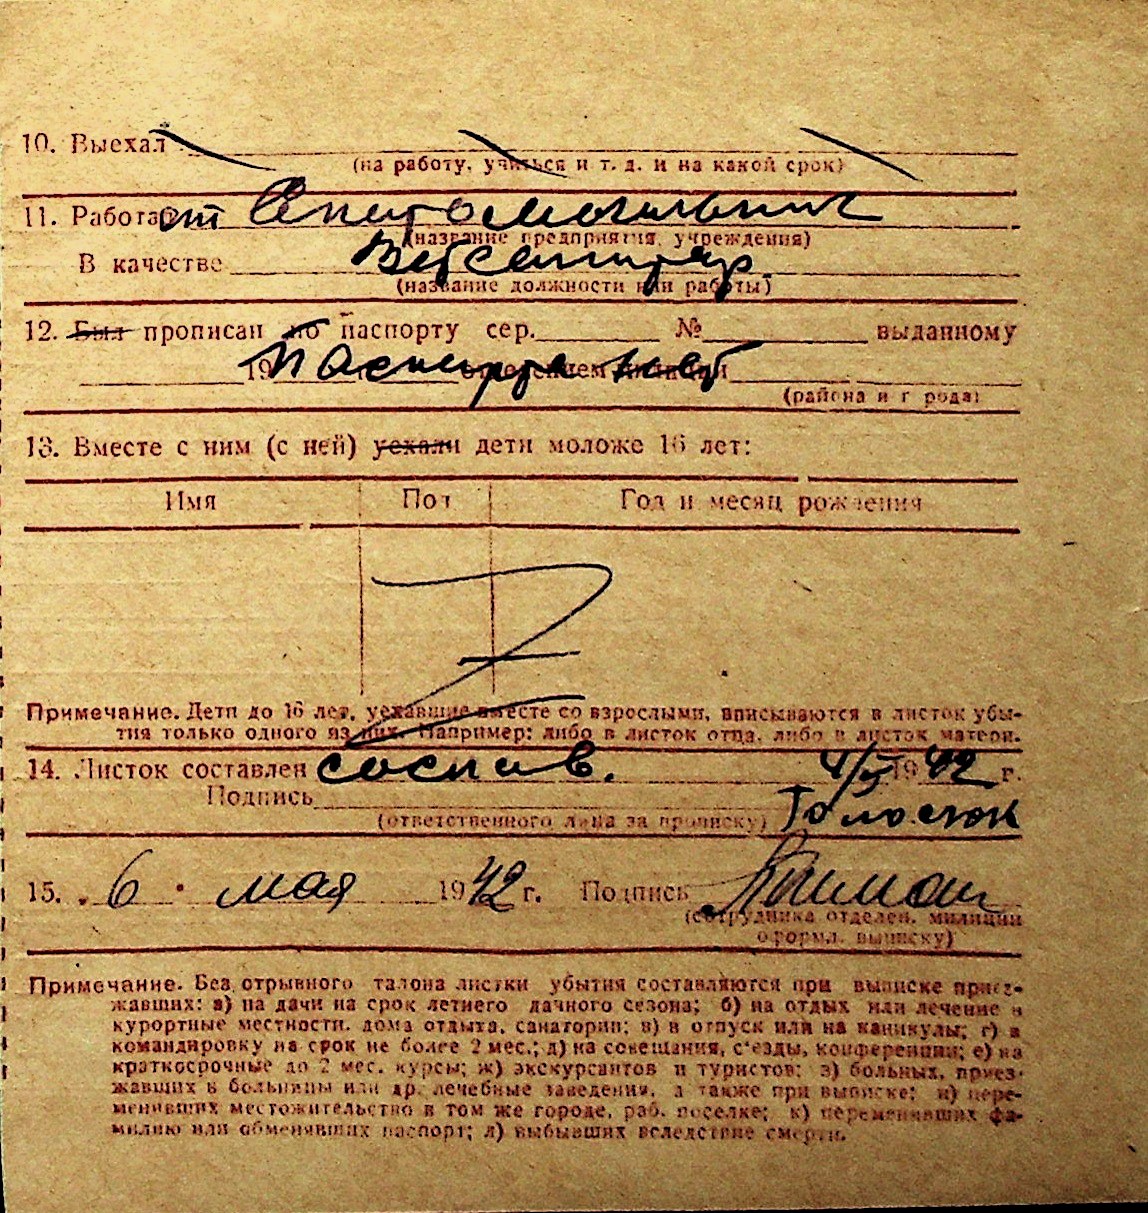 10. Выехал
(на работу, учиться и т. д. и на какой срок)
11. Работает Скотомогильник
(название предприятия, учреждения)
В качестве Ветсанитар
(название должности или работы)
12. Был прописан по паспорту сер. № выданному
19 Паспорта нет отделением милиции
(района и города)
13. Вместе с ним (с ней) уехали дети моложе 16 лет:
Имя Пол Год и месяц рождения
Примечание. Дети до 16 лет, уехавшие вместе со взрослыми, вписываются в листок убы-
тия только одного из них. Например: либо в листок отца, либо в листок матери.
14. Листок составлен 1942 г.
Подпись
(ответственного лица за прописку)
15. „6" мая 1942 г. Подпись
(сотрудника отделен. милиции
оформл. выписку)
Примечание. Без отрывного талона листки убытия составляются при выписке приез-
жавших: а) на дачи на срок летнего дачного сезона; б) на отдых или лечение в
курортные местности, дома отдыха, санатории; в) в отпуск или на каникулы; г) в
командировку на срок не более 2 мес.; д) на совещания, с'езды, конференции; е) на
краткосрочные до 2 мес. курсы; ж) экскурсантов и туристов; з) больных, приез-
жавших в больницы или др. лечебные заведения, а также при выписке; и) пере-
менивших местожительство в том же городе, раб. поселке; к) переменивших фа-
милию или обменявших паспорт; л) выбывших вследствие смерти.